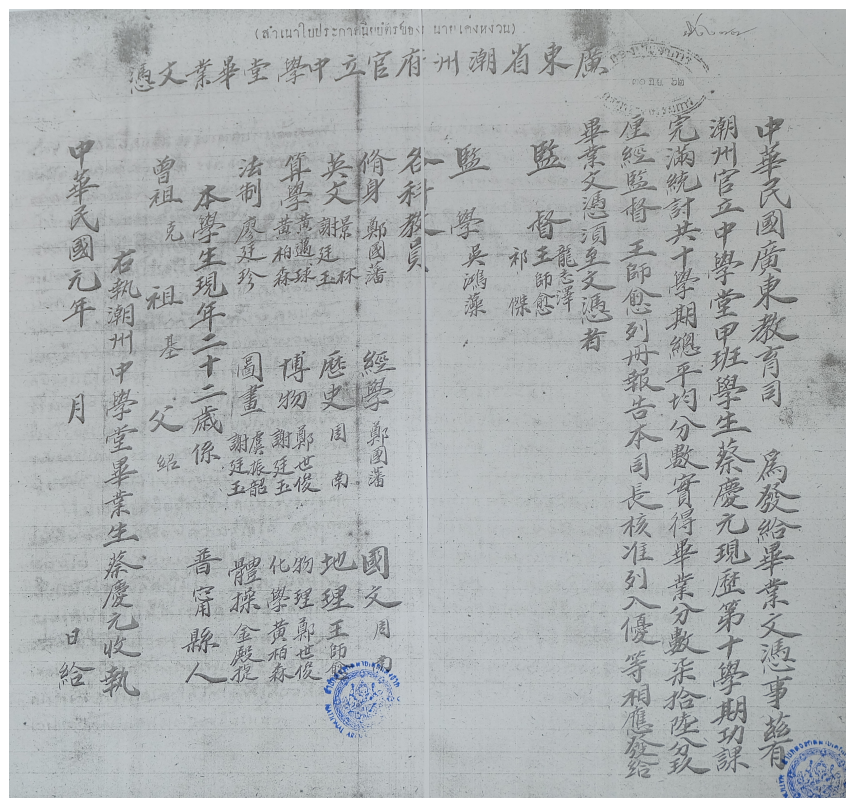 (สำเนาใบประกาศนียบัตรของ นายเคงหงวน)
廣東省潮州府官立中學堂畢業文憑
中華民國廣東教育司 爲發給畢業文憑事茲有
潮州官立中學堂甲班學生蔡慶元現歷第十學期功課
完滿統計共十學期總平均分數實得畢業分數柒拾陸分玖
厘經監督 王師愈列冊報告本司長核准列入優等相應發給
畢業文憑須至文憑者
監督 龍志澤 王師愈 祁傑
監學 吳鴻藻
各科教員
脩身 鄭國藩 經學 鄭國藩 國文 周南
英文 景林 謝廷玉 歷史 周南 地理 王師愈
算學 黃邁球 黃柏森 博物 鄭世俊 謝廷玉 物理 鄭世俊 化學 黃柏森
法制 廖廷珍 圖畫 虞振韶 謝廷玉 體操 金殿提
本學生現年二十二歲係 普甯縣人
曾祖 克 祖 基 父 紹
右執潮州中學堂畢業生蔡慶元收執
中華民國元年 月 日給